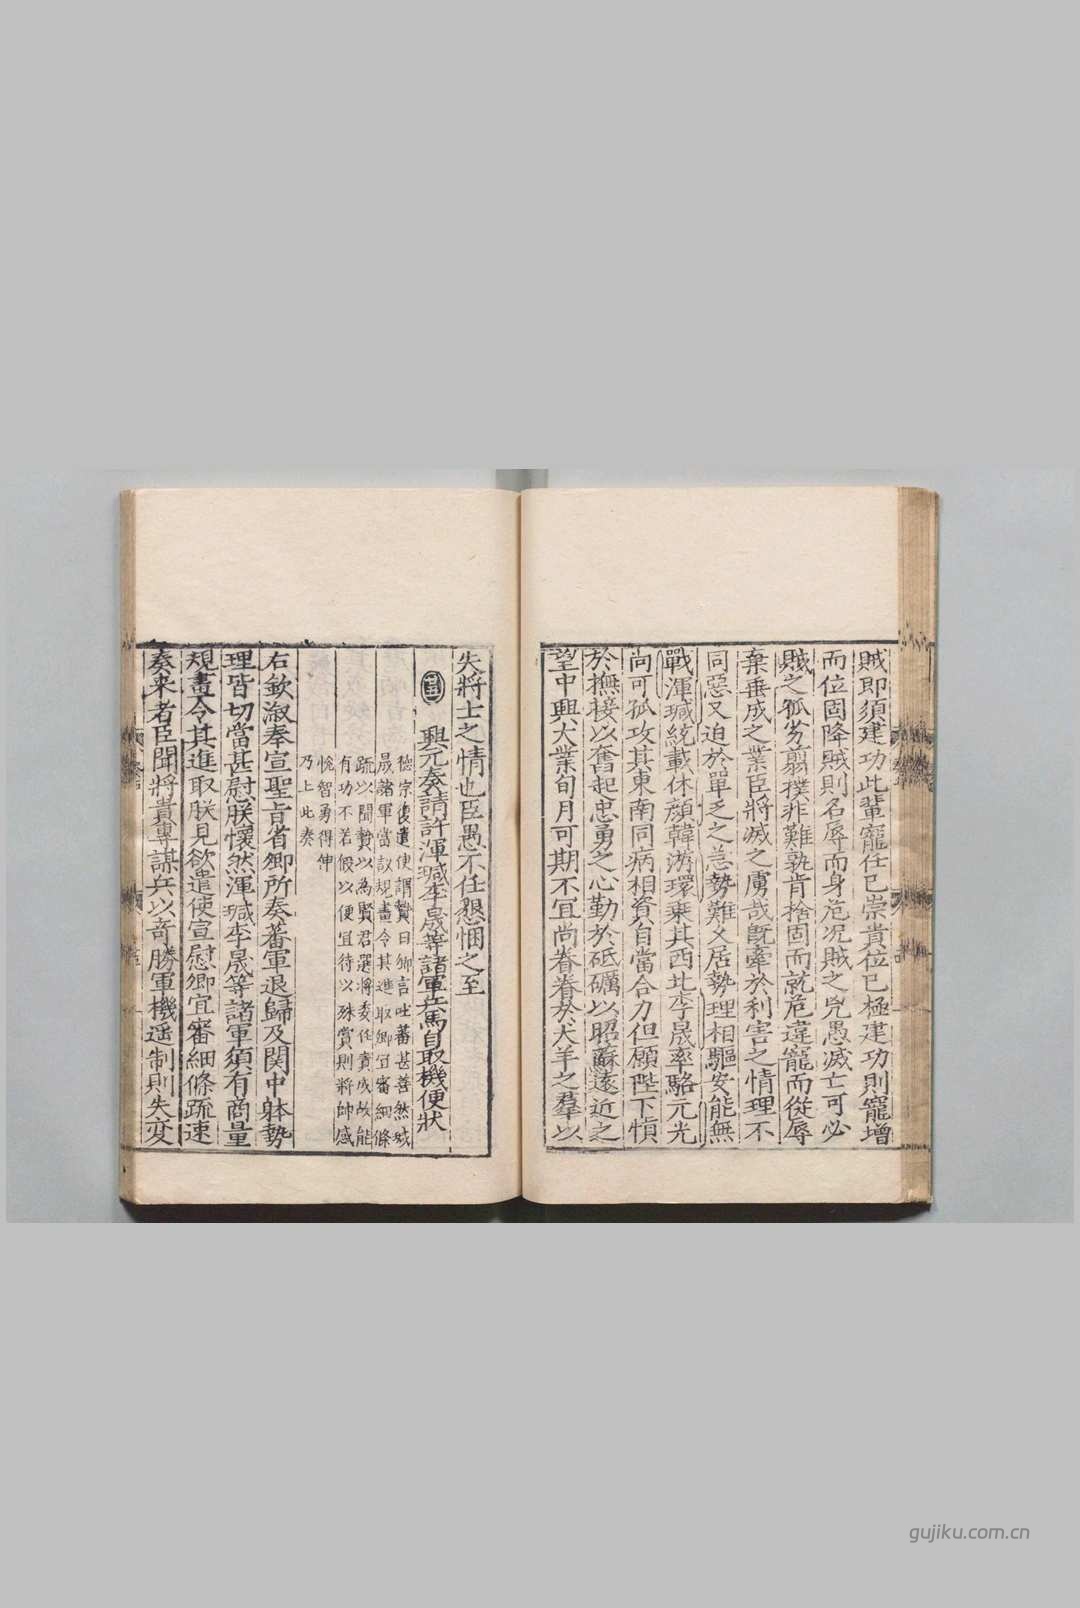 賊即須建功此輩寵任已崇貴位已極建功則寵增
而位固降賊則名辱而身危况賊之兇愚滅亡可必
賊之孤劣翦撲非難孰肯捨固而就危違寵而從辱
棄垂成之業臣將滅之虜哉旣牽於利害之情理不
同惡又迫於單乏之急勢難久居勢理相驅安能無
戰渾瑊統載休顔韓游環乗其西北李晟率駱元光
尚可孤攻其東南同病相資自當合力但願陛下慎
於撫接以奮起忠勇之心勤於砥礪以昭蘇遠近之
望中興大業旬月可期不冝尚眷眷於犬羊之羣以
失將士之情也臣愚不任懇悃之至
興元奏請許渾瑊李晟等諸軍兵馬自取機便狀
德宗復遣使謂贄曰卿言吐蕃甚善然瑊
晟諸軍當議規畫令其進取卿冝審細條
疏以聞贄以為賢君選將委任責成故能
有功不若假以便冝待以殊賞則將帥感
恱智勇得伸
乃上此奏
右欽溆奉宣聖旨省卿所奏蕃軍退歸及関中躰勢
理皆切當甚慰朕懷然渾瑊李晟等諸軍須有商量
規畫令其進取朕見欲遣使宣慰卿宜審細條疏速
奏来者臣聞將貴專謀兵以竒勝軍機遥制則失变
gujiku.com.cn